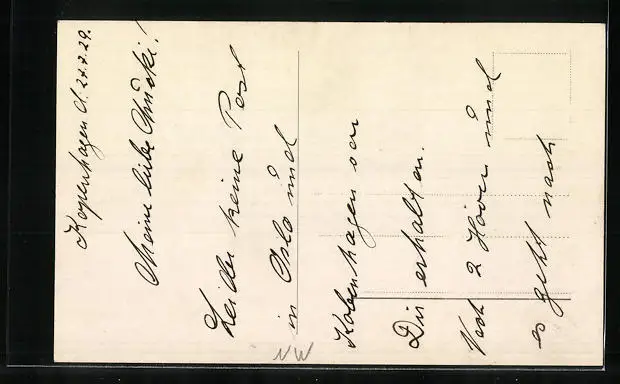 Kopenhagen d. 24.7.29.
Meine liebe Mucki!
Leider keine Post
in Oslo und
Kobenhagen von
Dir erhalten.
2
und
es geht nach
NW